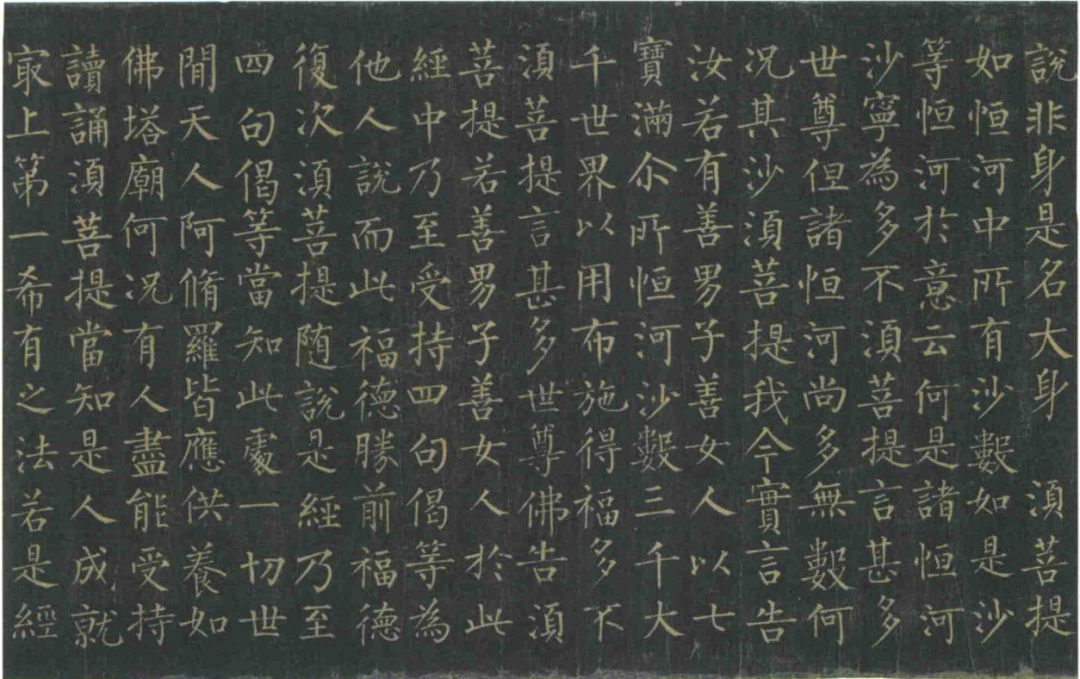 說非身是名大身　須菩提
如恒河中所有沙數如是沙
等恒河於意云何是諸恒河
沙寧為多不須菩提言甚多
世尊但諸恒河尚多無數何
況其沙須菩提我今實言告
汝若有善男子善女人以七
寶滿尒所恒河沙數三千大
千世界以用布施得福多不
須菩提言甚多世尊佛告須
菩提若善男子善女人於此
經中乃至受持四句偈等為
他人說而此福德勝前福德
復次須菩提随說是經乃至
四句偈等當知此處一切世
閒天人阿脩羅皆應供養如
佛塔廟何況有人盡能受持
讀誦須菩提當知是人成就
㝡上第一希有之法若是經